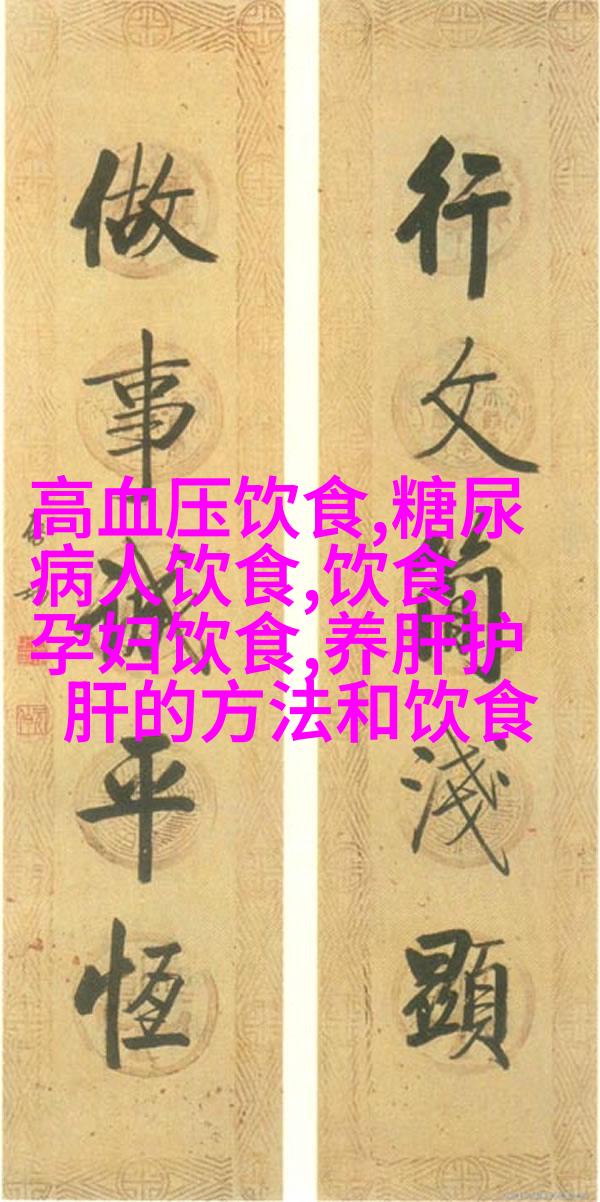 行文簡淺顯
做事誠平恆
高血压饮食,糖尿
病人饮食,饮食,
孕妇饮食,养肝护
肝的方法和饮食